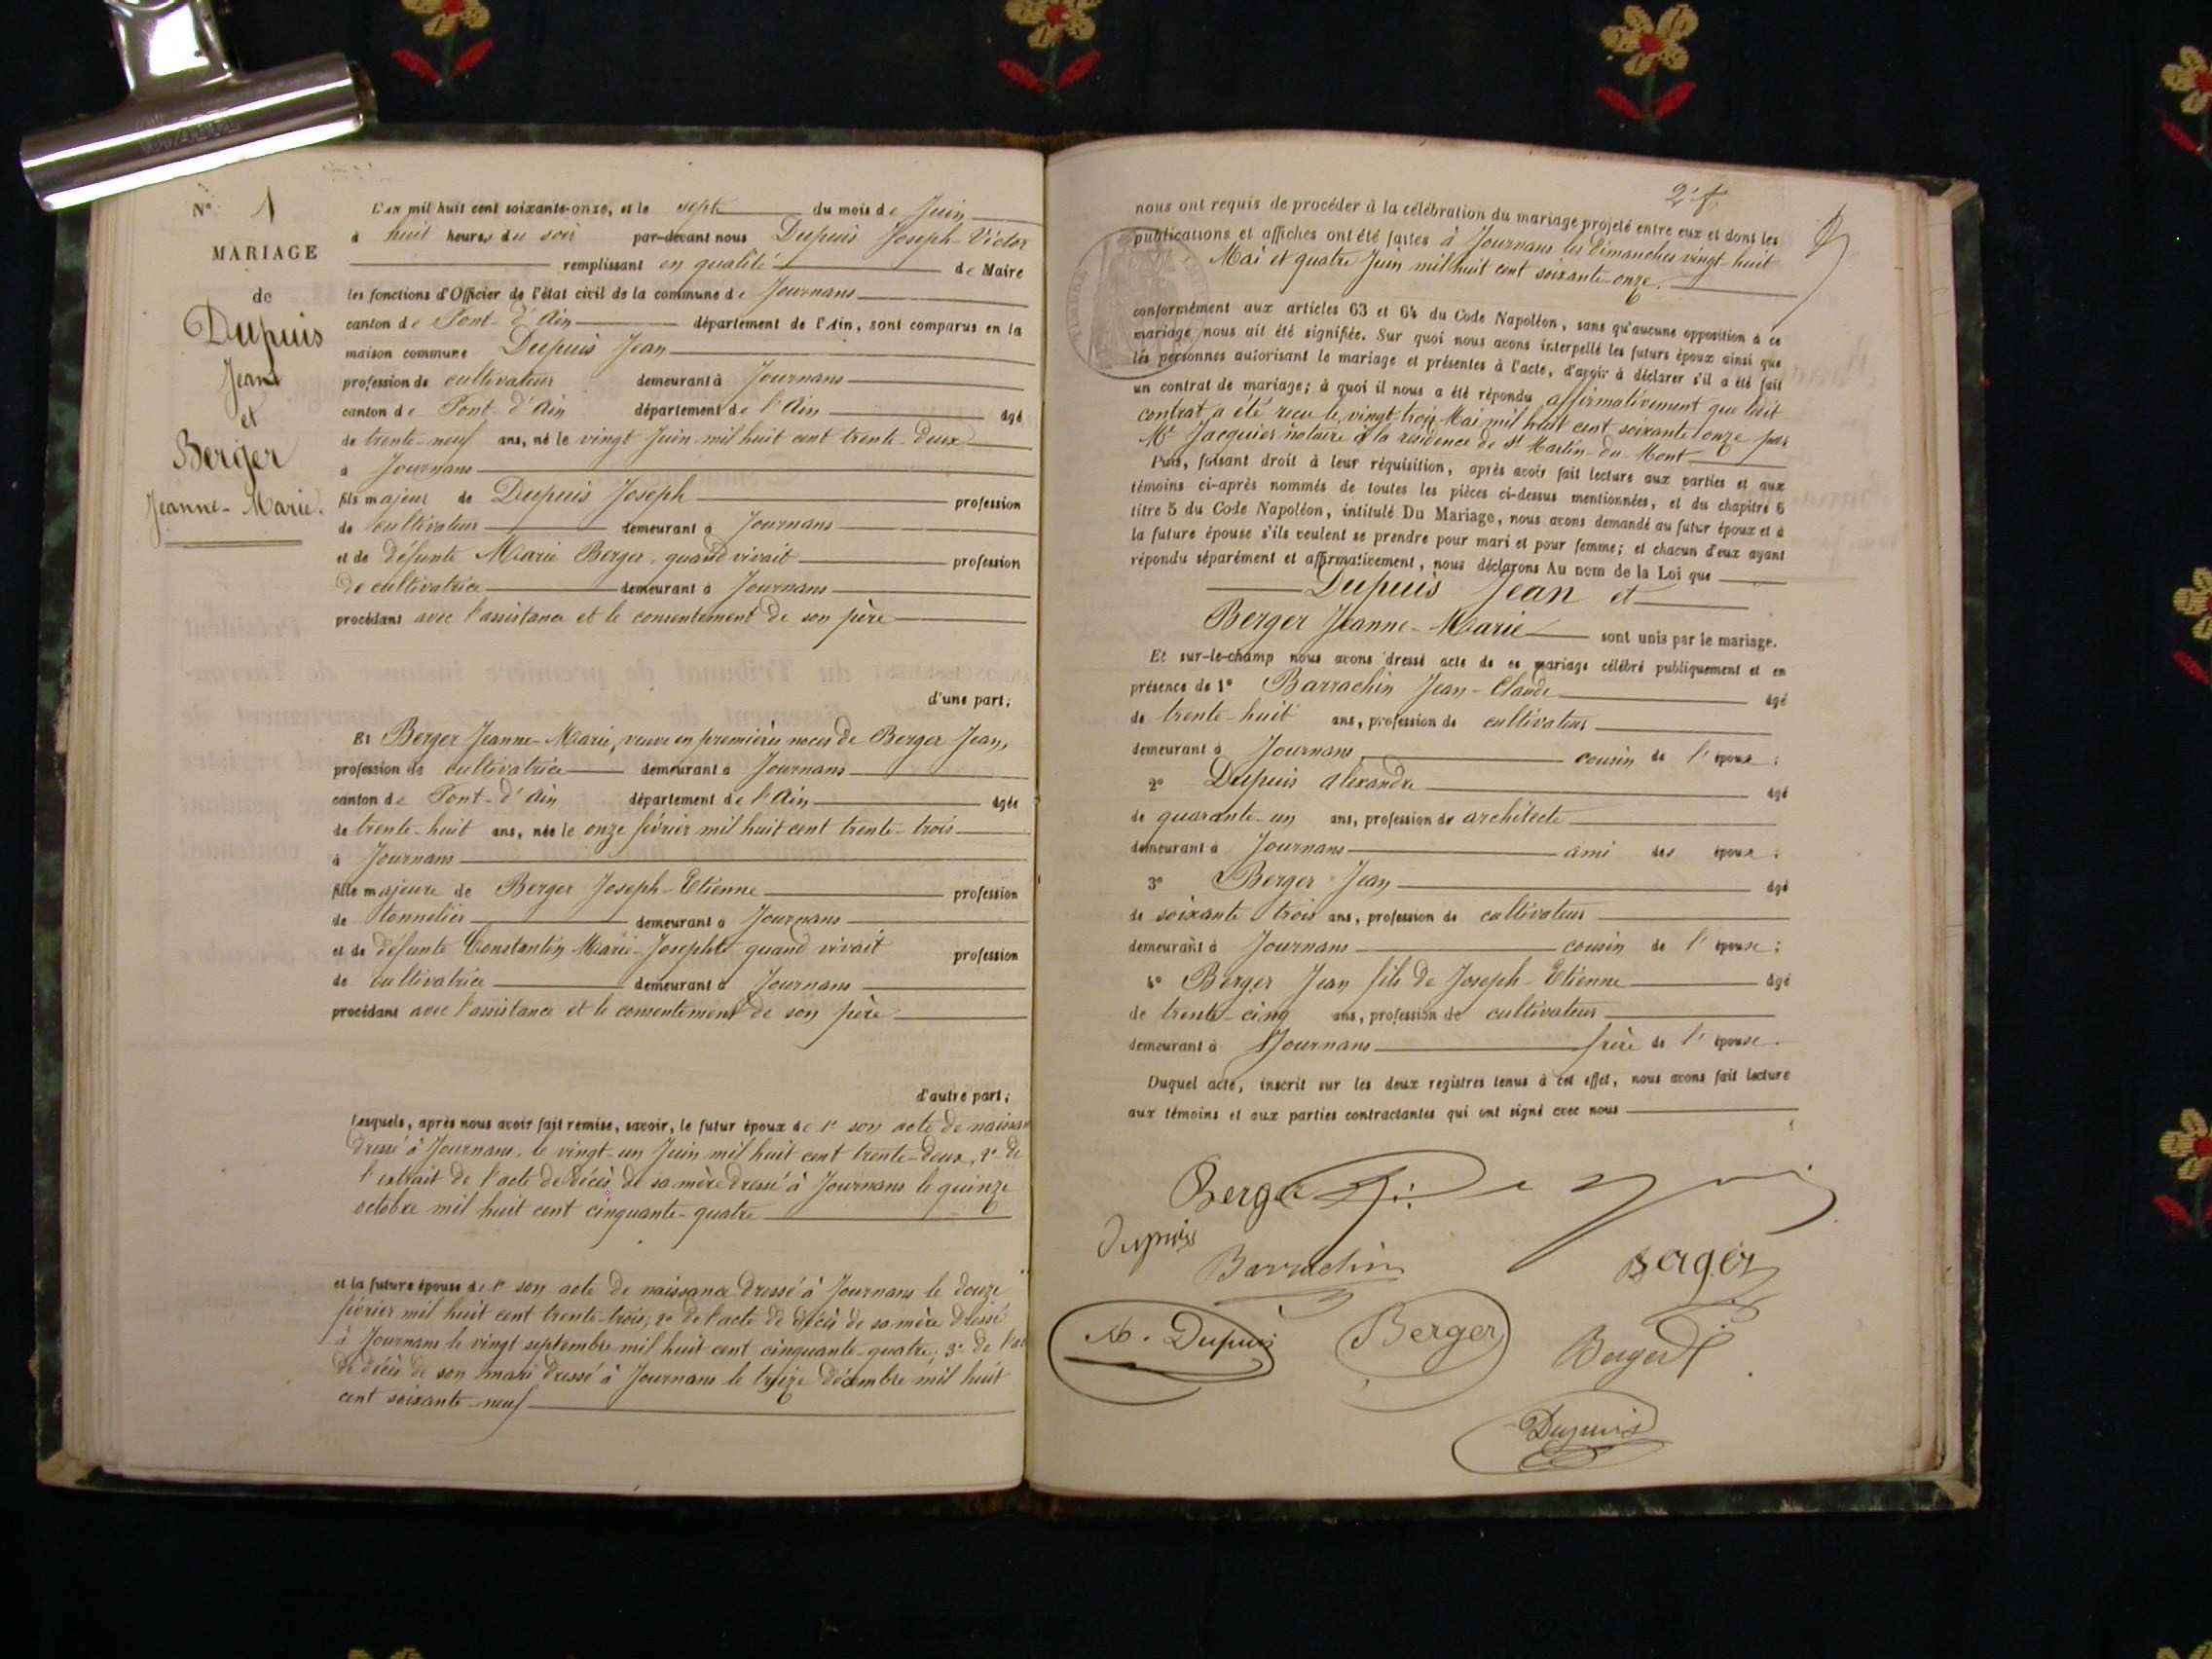 N° 1
MARIAGE
de
Dupuis
Jean
et
Berger
Jeanne-Marie.
L'AN mil huit cent soixante-onze, et le sept du mois de Juin
à huit heures du soir par-devant nous Dupuis Joseph-Victor
remplissant en qualité de Maire
les fonctions d'Officier de l'état civil de la commune de Journans
canton de Pont-d'Ain département de l'Ain, sont comparus en la
maison commune Dupuis Jean
profession de cultivateur demeurant à Journans
canton de Pont-d'Ain département de l'Ain âgé
de trente-neuf ans, né le vingt Juin mil huit cent trente-deux
à Journans
fils majeur de Dupuis Joseph profession
de cultivateur demeurant à Journans
et de défunte Marie Berger quand vivait profession
de cultivatrice demeurant à Journans
procédant avec l'assistance et le consentement de son père
d'une part;
Et Berger Jeanne-Marie, veuve en premières noces de Berger Jean,
profession de cultivatrice demeurant à Journans
canton de Pont-d'Ain département de l'Ain âgée
de trente-huit ans, née le onze février mil huit cent trente-trois
à Journans
fille majeure de Berger Joseph-Etienne profession
de tonnelier demeurant à Journans
et de défunte Constantin Marie-Josephte quand vivait profession
de cultivatrice demeurant à Journans
procédant avec l'assistance et le consentement de son père
d'autre part;
Lesquels, après nous avoir fait remise, savoir, le futur époux de 1° son acte de naissan
dressé à Journans, le vingt-un Juin mil huit cent trente-deux, 2° de
l'extrait de l'acte de décès de sa mère dressé à Journans le quinze
octobre mil huit cent cinquante-quatre
et la future épouse de 1° son acte de naissance dressé à Journans le douze
février mil huit cent trente-trois; 2° de l'acte de décès de sa mère dressé
à Journans le vingt septembre mil huit cent cinquante-quatre; 3° de l'
de décès de son mari dressé à Journans le treize décembre mil huit
cent soixante-neuf
2e f.
nous ont requis de procéder à la célébration du mariage projeté entre eux et dont les
publications et affiches ont été faites à Journans les dimanches vingt-huit
Mai et quatre Juin mil huit cent soixante-onze.
conformément aux articles 63 et 64 du Code Napoléon, sans qu'aucune opposition à ce
mariage nous ait été signifiée. Sur quoi nous avons interpellé les futurs époux ainsi que
les personnes autorisant le mariage et présentes à l'acte, d'avoir à déclarer s'il a été fait
un contrat de mariage; à quoi il nous a été répondu affirmativement que ledit
contrat a été recu le vingt-trois Mai mil huit cent soixante onze par
Me Jacquier notaire à la résidence de St Martin-du-Mont
Puis, faisant droit à leur réquisition, après avoir fait lecture aux parties et aux
témoins ci-après nommés de toutes les pièces ci-dessus mentionnées, et du chapitre 6
titre 5 du Code Napoléon, intitulé Du Mariage, nous avons demandé au futur époux et à
la future épouse s'ils veulent se prendre pour mari et pour femme; et chacun d'eux ayant
répondu séparément et affirmativement, nous déclarons Au nom de la Loi que
Dupuis Jean et
Berger Jeanne-Marie sont unis par le mariage.
Et sur-le-champ nous avons dressé acte de ce mariage célébré publiquement et en
présence de 1° Barrachin Jean-Claude âgé
de trente-huit ans, profession de cultivateur
demeurant à Journans cousin de l'époux;
2° Dupuis Alexandre âgé
de quarante-un ans, profession de architecte
demeurant à Journans ami des époux;
3° Berger Jean âgé
de soixante trois ans, profession de cultivateur
demeurant à Journans cousin de l'épouse;
4° Berger Jean fils de Joseph-Etienne âgé
de trente-cinq ans, profession de cultivateur
demeurant à Journans frère de l'épouse.
Duquel acte, inscrit sur les deux registres tenus à cet effet, nous avons fait lecture
aux témoins et aux parties contractantes qui ont signé avec nous
Berger
Dupuis
Barrachin
Berger
A. Dupuis
Berger
Berger
Dupuis